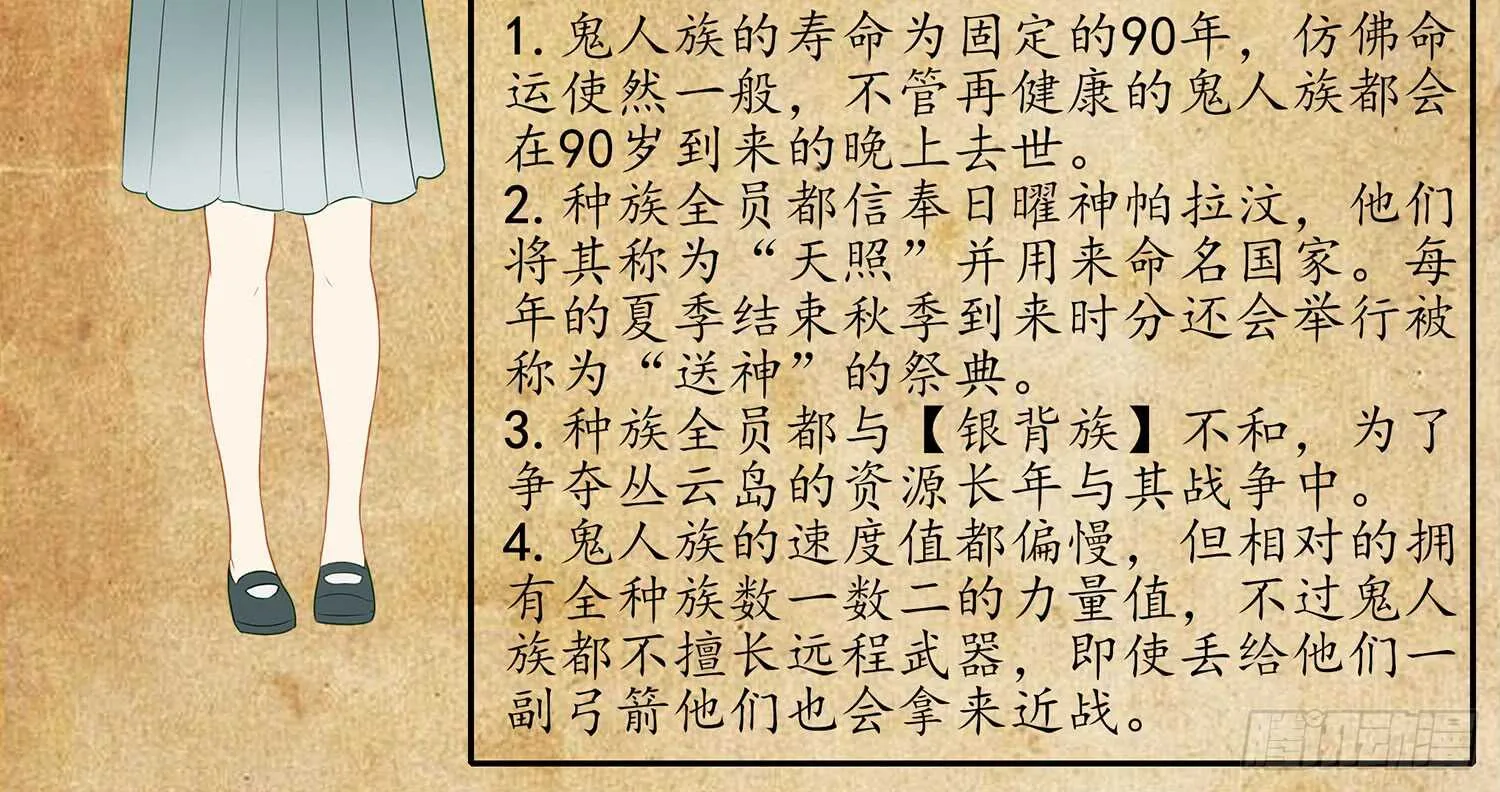 1. 鬼人族的寿命为固定的90年，仿佛命
运使然一般，不管再健康的鬼人族都会
在90岁到来的晚上去世。
2. 种族全员都信奉日曜神帕拉汶，他们
将其称为“天照”并用来命名国家。每
年的夏季结束秋季到来时分还会举行被
称为“送神”的祭典。
3. 种族全员都与【银背族】不和，为了
争夺丛云岛的资源长年与其战争中。
4. 鬼人族的速度值都偏慢，但相对的拥
有全种族数一数二的力量值，不过鬼人
族都不擅长远程武器，即使丢给他们一
副弓箭他们也会拿来近战。
腾讯动漫